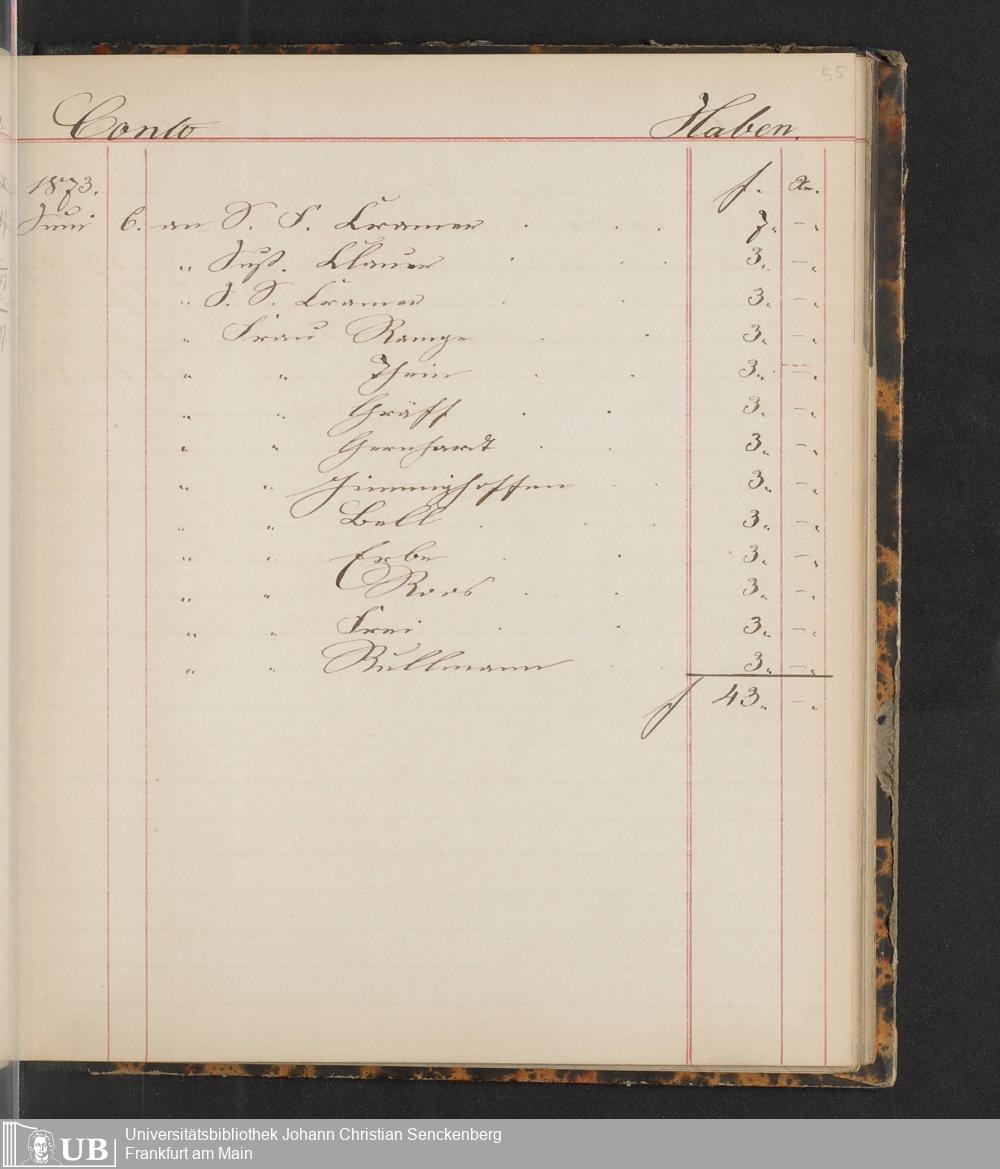 55
Conto Haben.
1873. f. Xr.
Juni 6. an S. F. Cramer . . . 7. -.
" Just. Clauer . . . 3. -.
" J. S. Cramer . . 3. -.
" Frau Ramge . . 3. -.
" " Thein . . 3. -.
" " Gräff . . 3. -.
" " Gernhardt . . 3. -.
" " Zimmighoffen . . 3. -.
" " Bell . . . 3. -.
" " Erbe . . 3. -.
" " Roos . . 3. -.
" " Frei . . 3. -.
" " Rullmann . . 3. -.
f 43. -.
UB Universitätsbibliothek Johann Christian Senckenberg
Frankfurt am Main